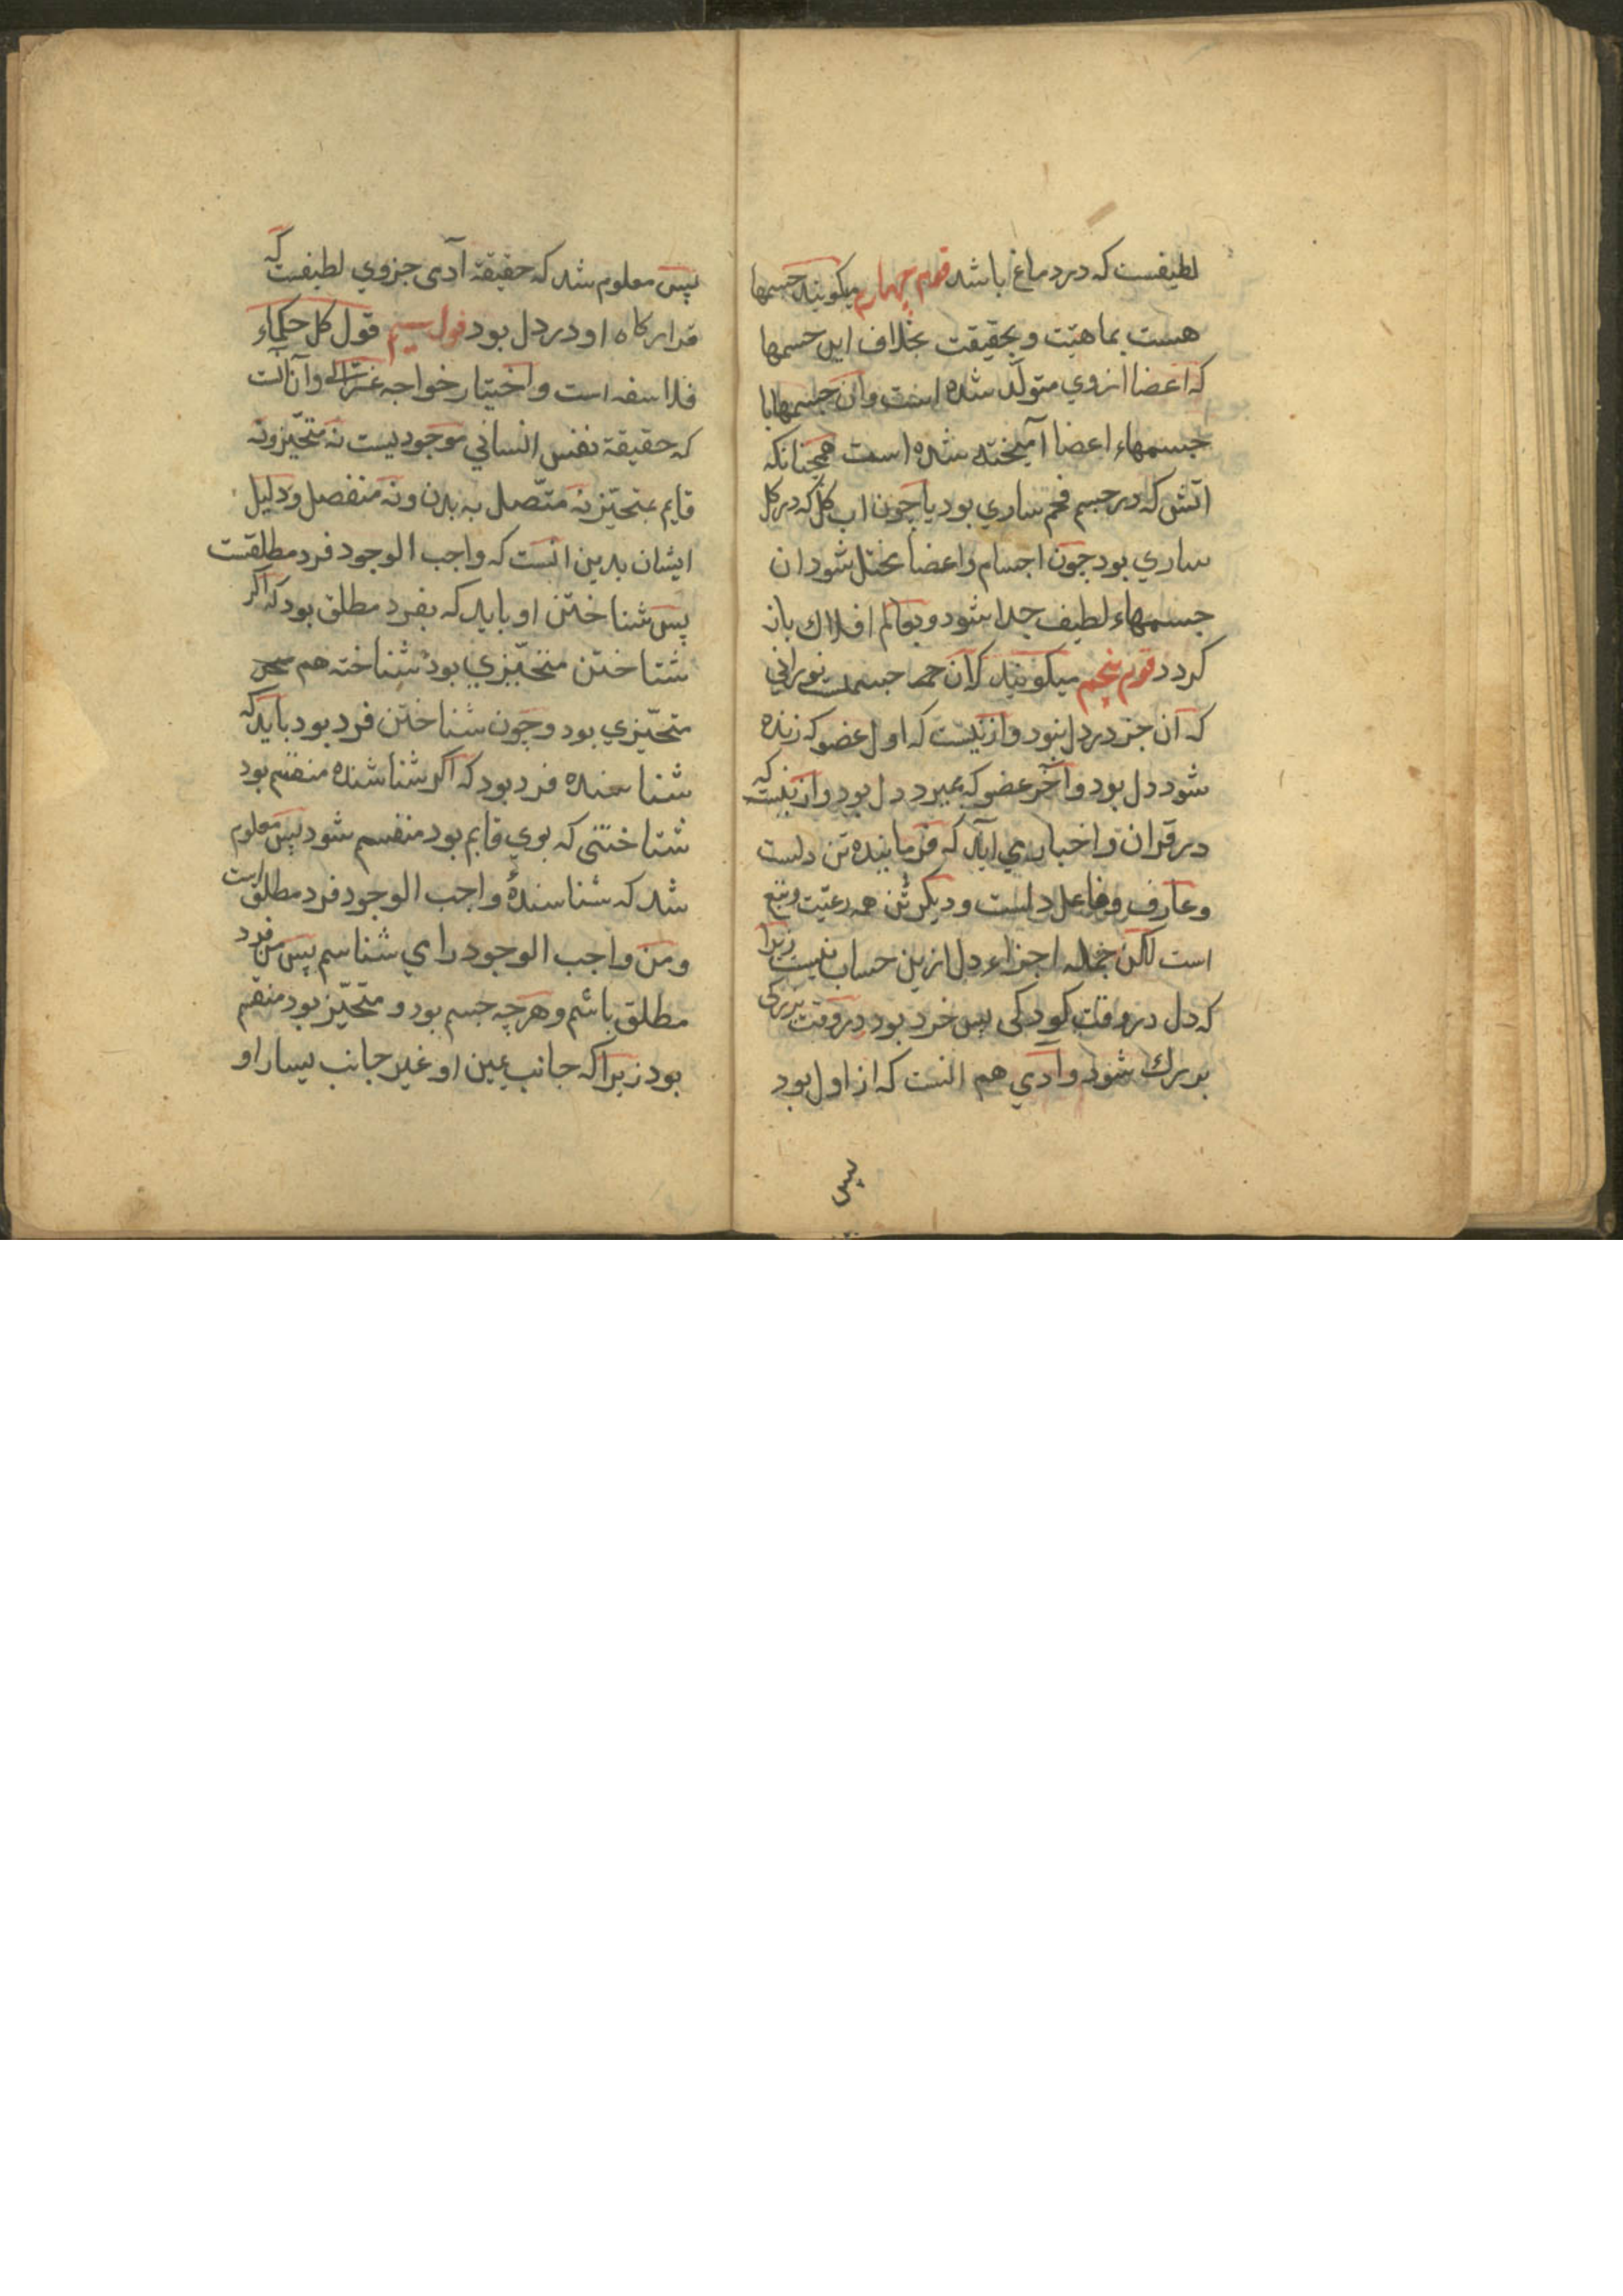 لطیفست که در دماغ باشد قوم چهارم میکویند جسمها
هست بماهیّت و بحقیقت بخلاف این جسمها
که اعضا ازوي متولّد شده است وان جسمها با
جسمهاء اعضا آمیخته شده است همچنانکه
اتش که در جسم فحم ساري بود یا چون اب کل که در کل
ساري بود چون اجسام و اعضا مختل شود ان
جسمهاء لطیف جدا شود و بعالم افلاك باز
کردد قوم پنجم میکویند که آن جسمیست نوراني
که آن جز در دل نبود و ازینست که اول عضو که زنده
شود دل بود و آخر عضو که بمیرد دل بود و ازینست که
در قران و اخبار مي آید که فرماینده تن دلست
و عارف و فاعل دلست و دیکر تن همه رعیّت و تبع
است لکن جمله اجزاء دل ازین حساب نیست زیرا
که دل در وقت کودکی بس خرد بود در وقت بزرکي
بزرك شود و آدمي هم انست که از اول بود
پس
پس معلوم شد که حقیقة آدمی جزوي لطیفست که
قرارکاه او در دل بود قول سیم قول کل حکماء
فلاسفه است و اختیار خواجه غزالي و آن آنست
که حقیقة نفس انساني موجودیست نه متحیّز و نه
قایم بمتحیّز نه متّصل به بدن و نه منفصل و دلیل
ایشان بدین انست که واجب الوجود فرد مطلقست
پس شناختن او باید که بفرد مطلق بود که اکر
شناختن متحیّزي بود شناخته هم
متحیّزي بود و چون شناختن فرد بود باید که
شناسنده فرد بود که اکر شناسنده منقسم بود
شناختنی که بوي قایم بود منقسم شود پس معلوم
شد که شناسندهٔ واجب الوجود فرد مطلق است
و من واجب الوجود را مي شناسم پس من فرد
مطلق باشم و هرچه جسم بود و متحیّز بود منقسم
بود زیرا که جانب یمین او غیر جانب یسار او